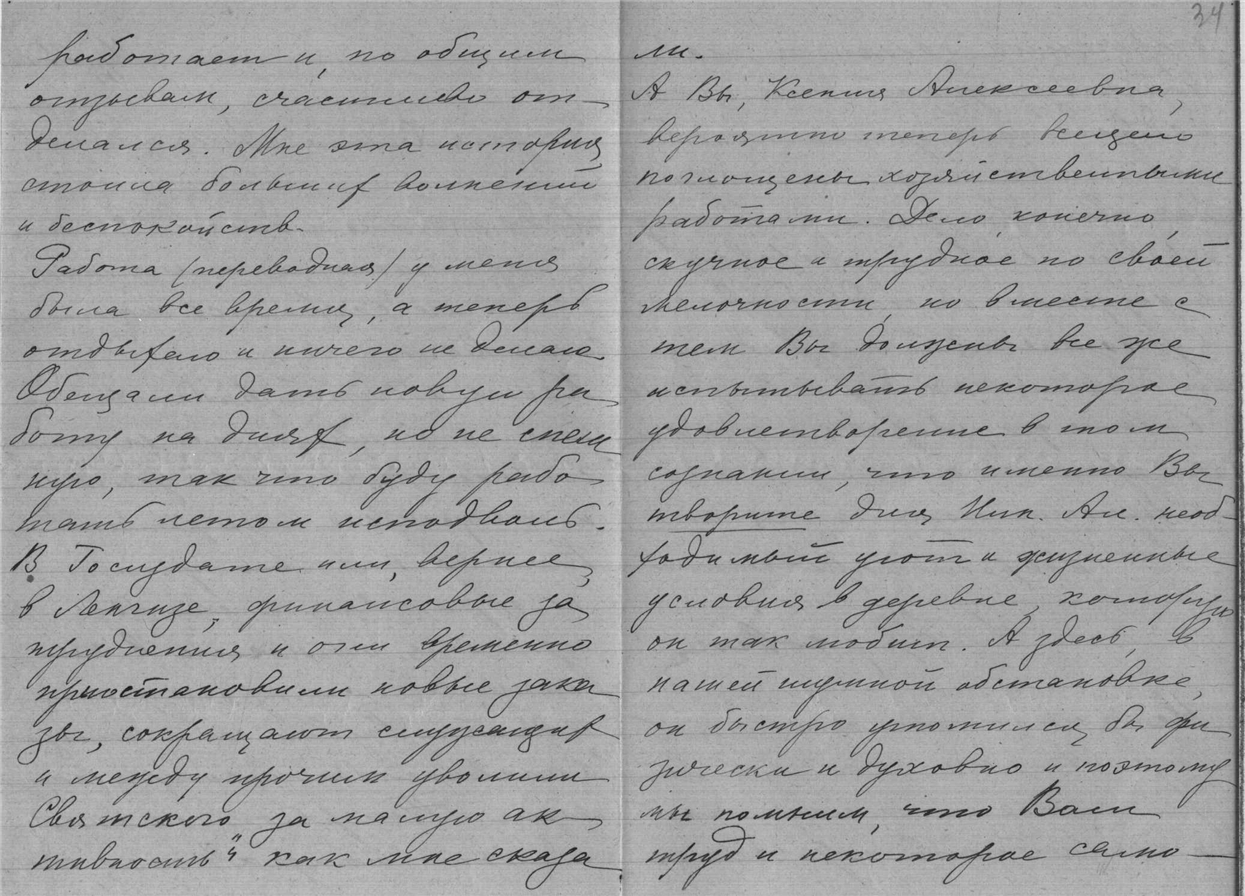 работает и, по общим
отзывам, счастливо от-
делался. Мне эта история
стоила больших волнений
и беспокойств.
Работа (переводная) у меня
была все время, а теперь
отдыхаю и ничего не делаю.
Обещали дать новую ра
боту на днях, но не спеш
ную, так что буду рабо
тать летом исподволь.
В Госиздате или, вернее,
в Ленгизе, финансовые за
труднения и они временно
приостановили новые зака
зы, сокращают служащих
и между прочим уволили
Святского за малую ак
тивность" как мне сказа
34
ли.
А Вы, Ксения Алексеевна,
вероятно теперь всецело
поглощены хозяйственными
работами. Дело, конечно,
скучное и трудное по своей
мелочности, но вместе с
тем Вы должны все же
испытывать некоторое
удовлетворение в том
сознании, что именно Вы
творите для Ник. Ал. необ-
ходимый уют и жизненные
условия в деревне, которую
он так любит. А здесь, в
нашей шумной обстановке,
он быстро утомился бы фи
зически и духовно и поэтому
мы помним, что Ваш
труд и некоторое само-